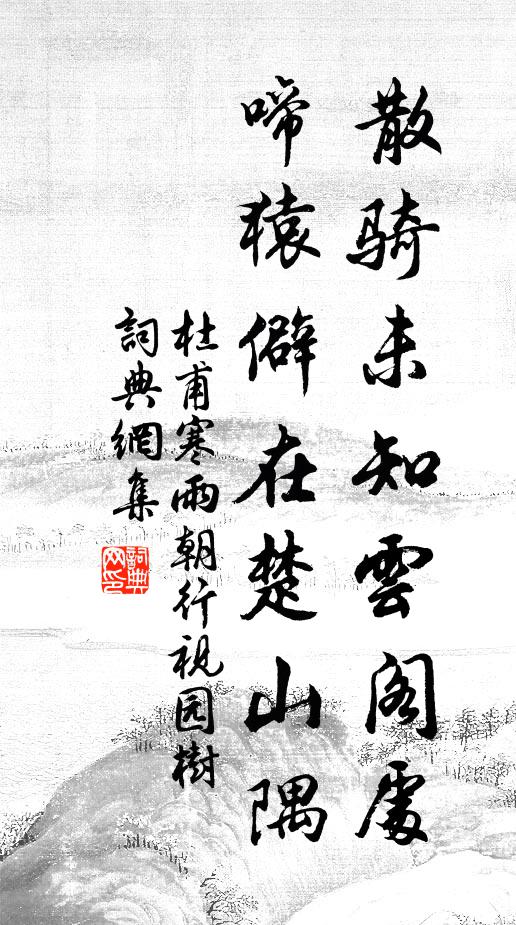 散骑未知雲阁處
啼猿僻在楚山隅
杜甫寒雨朝行视园樹
詞典網集
詞典網印